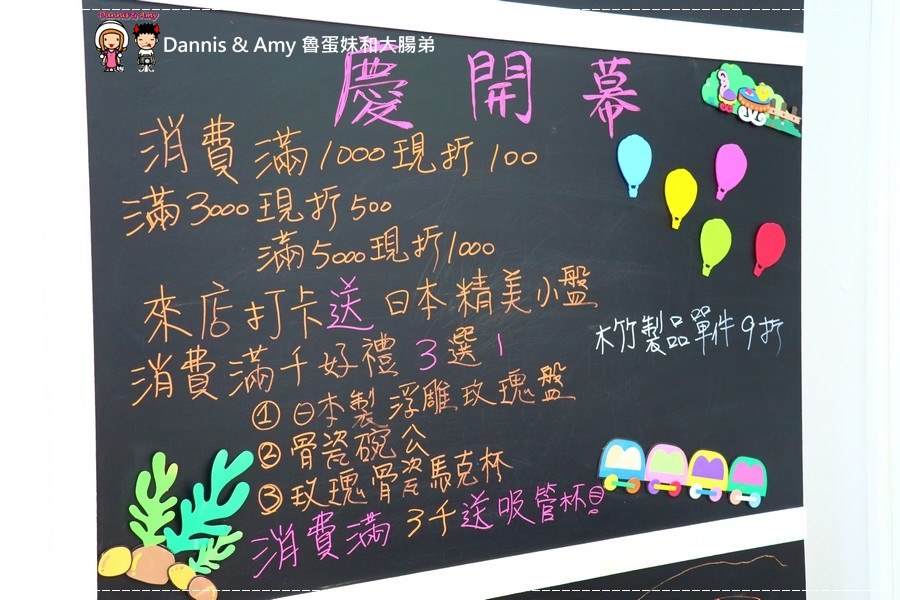 Dannis & Amy
Dannis & Amy 魯蛋妹和大腸弟
慶開幕
消費滿1000現折100
滿3000現折500
滿5000現折1000
來店打卡送日本精美小盤
木竹製品單件9折
消費滿千好禮3選1
①日本製浮雕玫瑰盤
②骨瓷碗公
③玫瑰骨瓷馬克杯
消費滿3千送吸管杯!